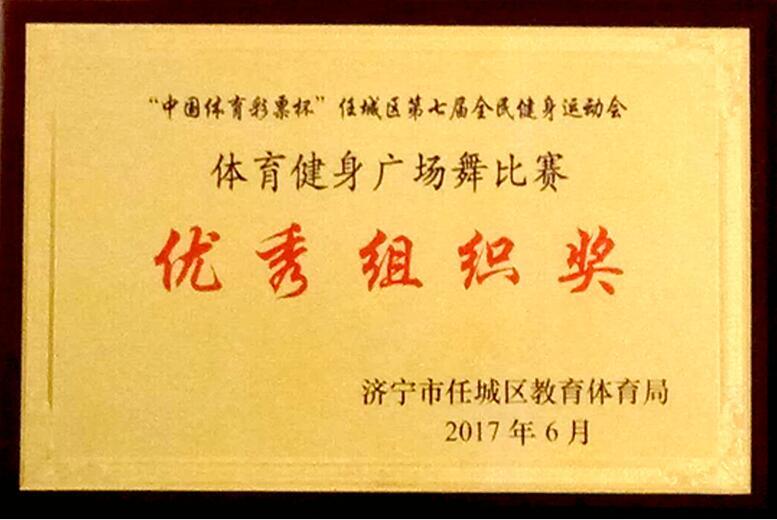 “中国体育彩票杯”任城区第七届全民健身运动会
体育健身广场舞比赛
优秀组织奖
济宁市任城区教育体育局
2017年6月